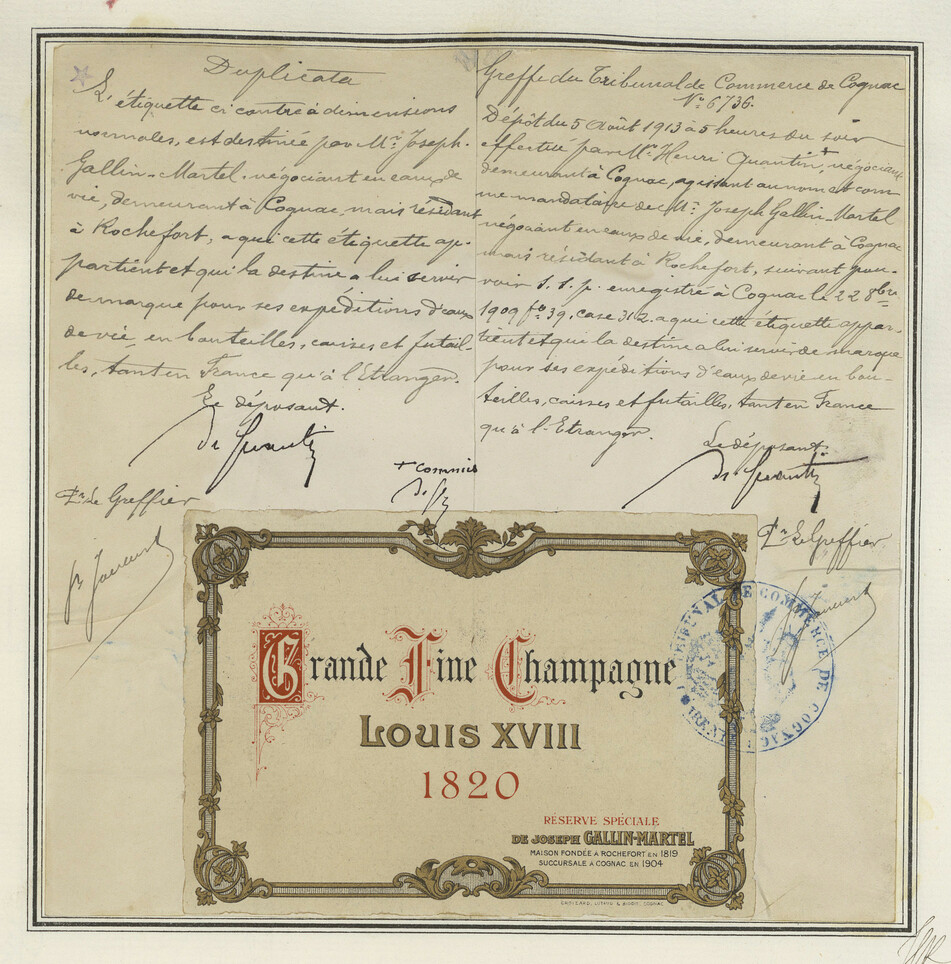 Duplicata
L'étiquette ci contre à dimensions
normales, est destinée par Mr. Joseph-
Gallin-Martel, négociant en eaux de
vie, demeurant à Cognac, mais résidant
à Rochefort, a qui cette étiquette ap-
partient et qui la destine a lui servir
de marque pour ses expéditions d'eaux
de vie, en bouteilles, caisses et futail-
les, tant en France qu'à l'Etranger.
Le déposant.
Pr. Le Greffier
Greffe du Tribunal de Commerce de Cognac
No. 6736.
Dépôt du 5 Août 1913 à 5 heures du soir
effectué par Mr. Henri Quantin, + négociant
demeurant à Cognac, agissant au nom et com
me mandataire de Mr. Joseph Gallin-Martel
négociant en eaux de vie, demeurant à Cognac
mais résidant à Rochefort, suivant pou-
voir s. s. p. enregistré à Cognac le 22 8bre
1909 fo. 39, case 312. a qui cette étiquette appar-
tient et qui la destine a lui servir de marque
pour ses expéditions d'eaux de vie en bou-
teilles, caisses et futailles, tant en France
qu'à l'Etranger.
Le déposant.
+ commis
Pr. Le Greffier
TRIBUNAL DE COMMERCE DE COGNAC
Grande Fine Champagne
LOUIS XVIII
1820
RÉSERVE SPÉCIALE
DE JOSEPH GALLIN-MARTEL
MAISON FONDÉE A ROCHEFORT EN 1819
SUCCURSALE A COGNAC EN 1904